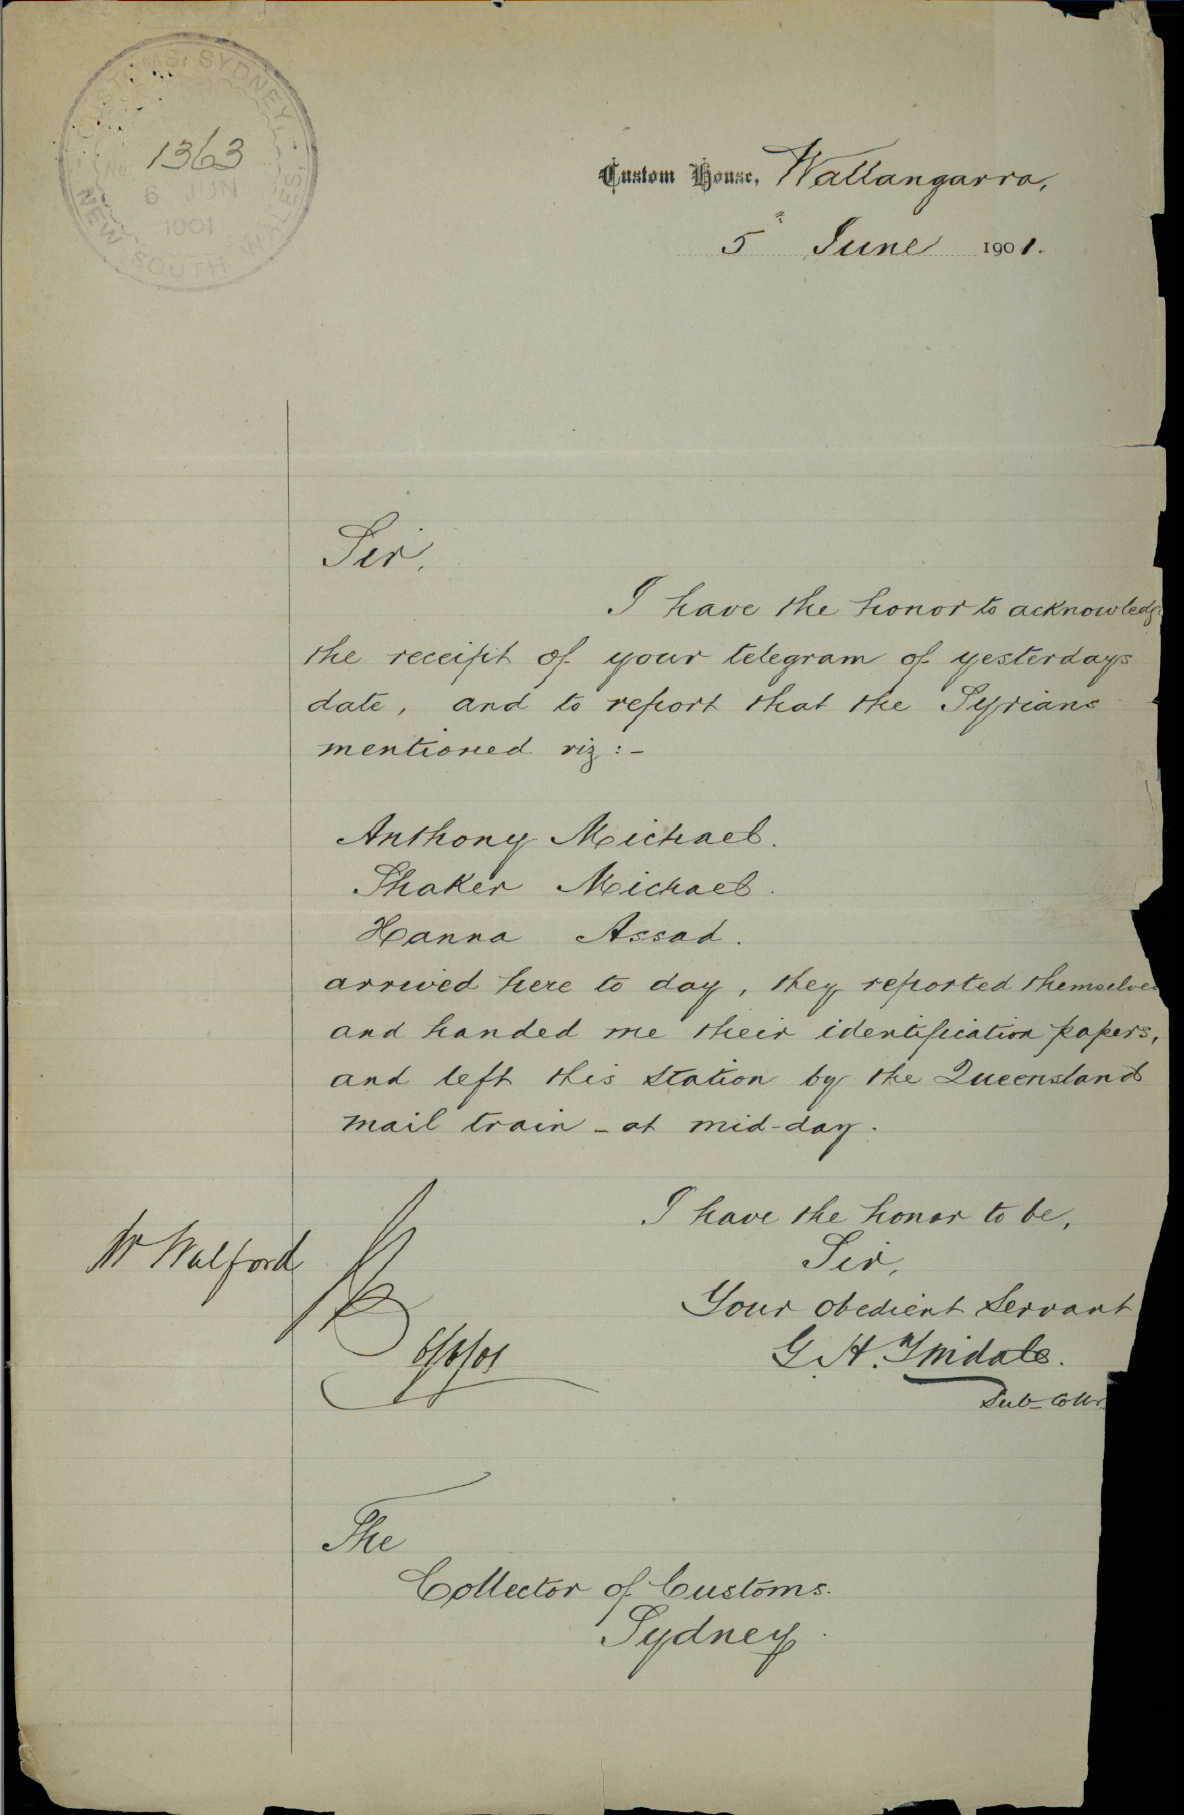 CUSTOMS, SYDNEY,
No 1363
6 JUN
1901
NEW SOUTH WALES.
Custom House, Wallangarra,
5th June 1901.
Sir,
I have the honor to acknowledge
the receipt of your telegram of yesterdays
date, and to report that the Syrians
mentioned viz:-
Anthony Michael.
Shaker Michael.
Hanna Assad.
arrived here to day, they reported themselves
and handed me their identification papers,
and left this Station by the Queensland
mail train - at mid-day.
I have the honor to be,
Sir,
Your obedient Servant
G. H.
Sub-Collr
Mr Walford
6/6/01
The
Collector of Customs.
Sydney.